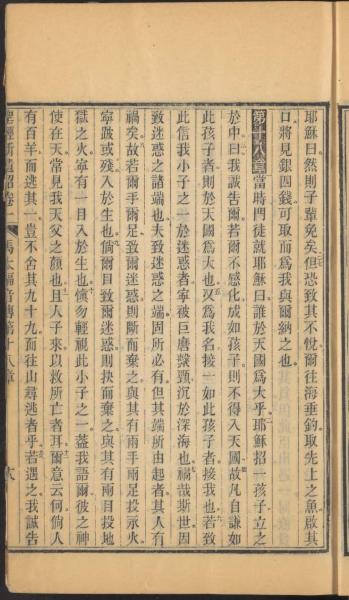 耶穌曰然則子輩免矣但恐致其不悅爾往海垂釣取先上之魚啟其
口將見銀四錢可取而爲我與爾納之也
第十八章當時門徒就耶穌曰誰於天國爲大乎耶穌招一孩子立之
於中曰我誠告爾若爾不感化成如孩子則不得入天國故凡自謙如
此孩子者則於天國爲大也又爲我名接一如此孩子者接我也若致
此信我小子之一於迷惑者寧被巨磨縈頸沉於深海也禍哉斯世因
致迷惑之諸端也夫致迷惑之端固所必有但其端所由起者其人有
禍矣故若爾手爾足致爾迷惑則斷而棄之與其有兩手兩足投永火
寧跛或殘入於生也倘爾目致爾迷惑則抉而棄之與其有兩目投地
獄之火寧有一目入於生也愼勿輕視此小子之一蓋我語爾彼之神
使在天常見我天父之顏也且人子來以救所亡者耳爾意云何倘人
有百羊而逃其一豈不舍其九十九而往山尋逃者乎若遇之我誠告
聖經新遺詔卷一 馬太福音傳第十八章 十八